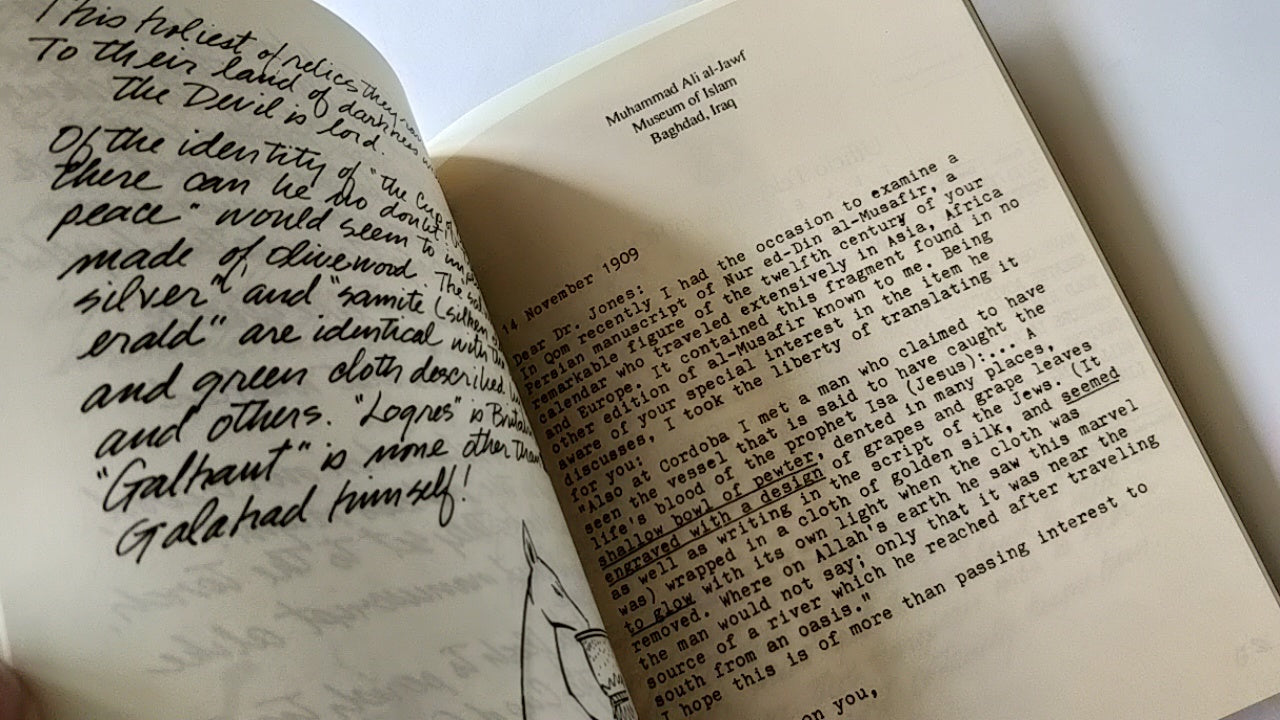 This holiest of relics they
To their land of darkness
the Devil is lord.
Of the identity of "the Cup
there can be no doubt!
peace" would seem to
made of olivewood The
silver" and "samite (silken
erald" are identical with
and green cloth described
and others. "Logres" is
"Galhaut" is none other than
Galahad himself!
Muhammad Ali al-Jawf
Museum of Islam
Baghdad, Iraq
14 November 1909
Dear Dr. Jones:
In Qom recently I had the occasion to examine a
Persian manuscript of Nur ed-Din al-Musafir, a
remarkable figure of the twelfth century of your
calendar who traveled extensively in Asia, Africa
and Europe. It contained this fragment found in no
other edition of al-Musafir known to me. Being
aware of your special interest in the item he
discusses, I took the liberty of translating it
for you:
"Also at Cordoba I met a man who claimed to have
seen the vessel that is said to have caught the
life's blood of the prophet Isa (Jesus):... A
shallow bowl of pewter, dented in many places,
engraved with a design of grapes and grape leaves
as well as writing in the script of the Jews. (It
was) wrapped in a cloth of golden silk, and seemed
to glow with its own light when the cloth was
removed. Where on Allah's earth he saw this marvel
the man would not say; only that it was near the
source of a river which he reached after traveling
south from an oasis."
I hope this is of more than passing interest to
on you,